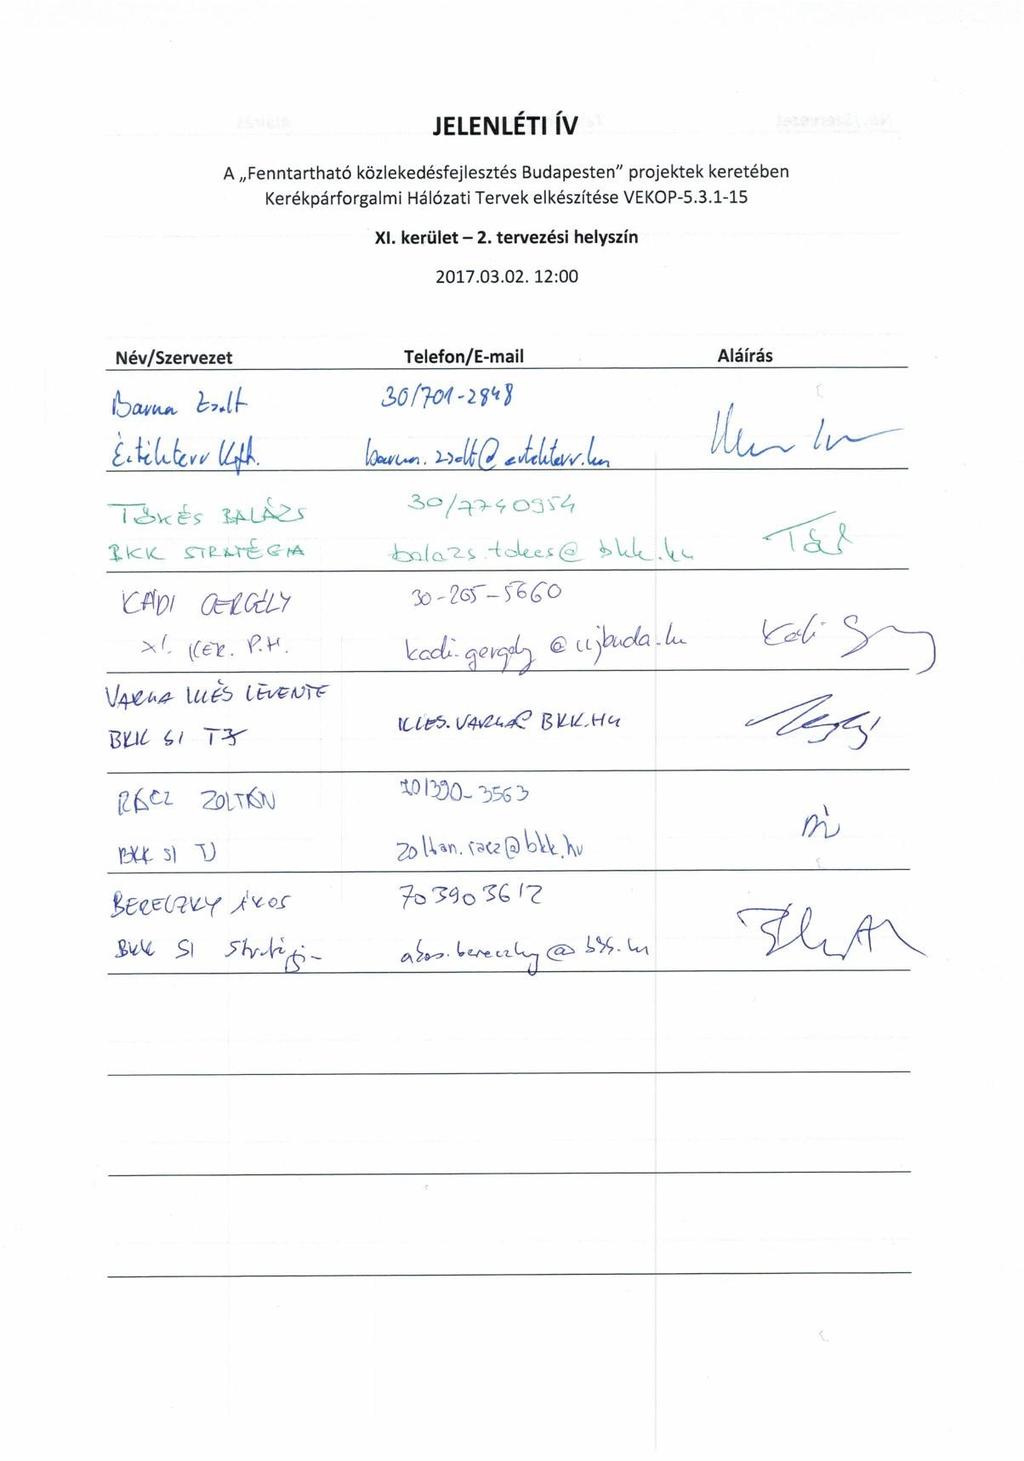 JELENLÉTI ÍV
A „Fenntartható közlekedésfejlesztés Budapesten” projektek keretében
Kerékpárforgalmi Hálózati Tervek elkészítése VEKOP-5.3.1-15
XI. kerület – 2. tervezési helyszín
2017.03.02. 12:00
Név/Szervezet Telefon/E-mail Aláírás
Barna Zsolt 30/701-2848
Kft. barna.zsolt@
TŐKÉS BALÁZS 30/7740954
BKK STRATÉGIA balazs.tokes@bkk.hu
KÁDI GERGELY 30-265-5660
XI. KER. P.H. kadi.gergely@ujbuda.hu Kádi
VARGA ILLÉS LEVENTE
BKK SI ILLES.VARGA@BKK.HU
RÁCZ ZOLTÁN 390-3563
BKK SI zoltan.racz@bkk.hu
BERECZKY ÁKOS 70 390 3612
BKK SI akos.bereczky@bkk.hu